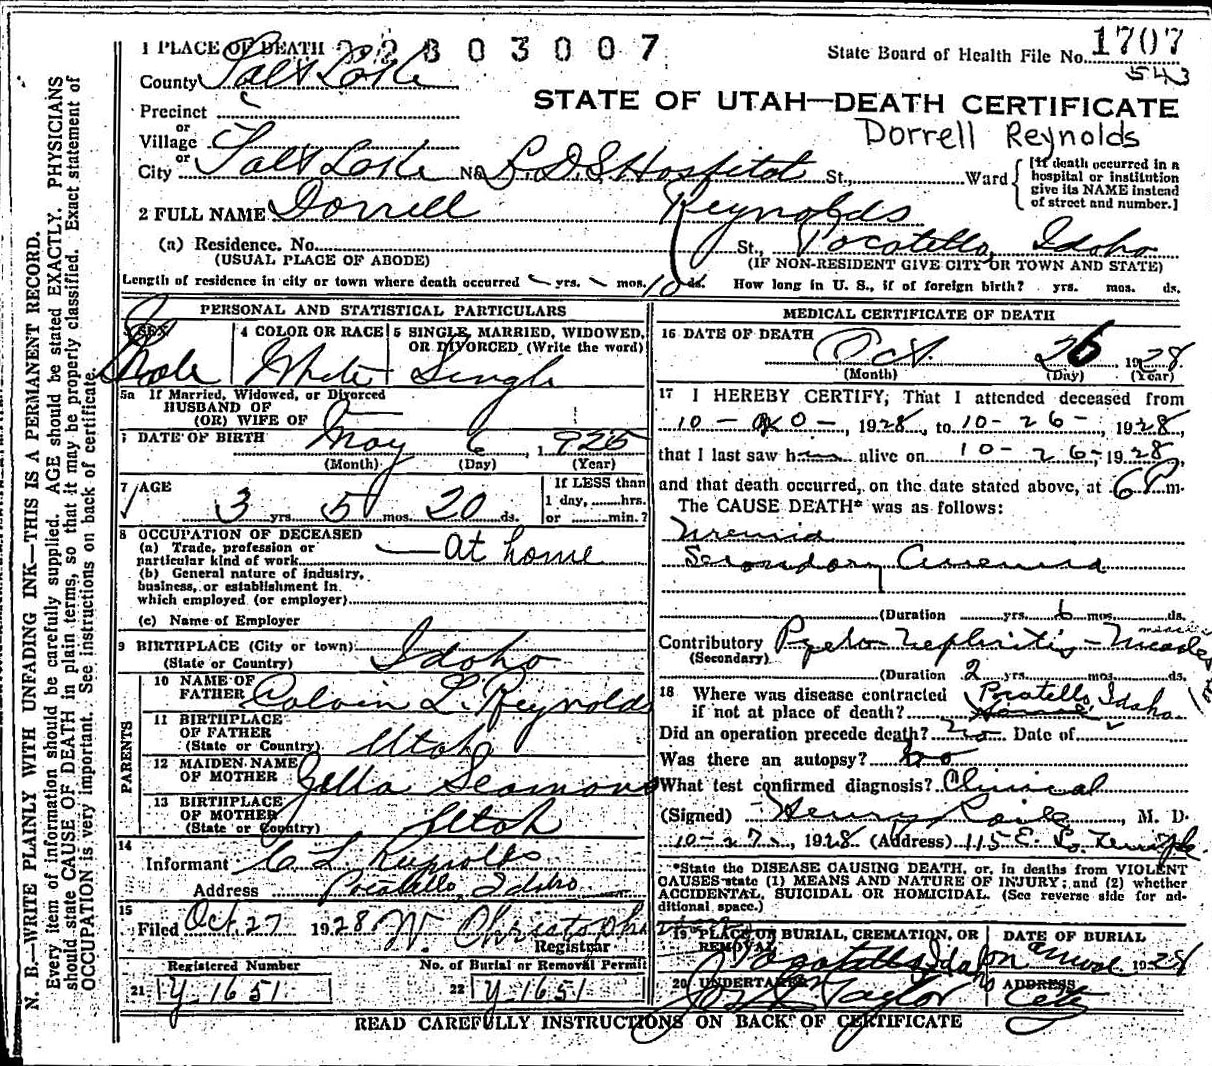 1 PLACE OF DEATH 2803007
State Board of Health File No. 1707
543
County Salt Lake
STATE OF UTAH—DEATH CERTIFICATE
Precinct
Dorrell Reynolds
or
Village
or
City Salt Lake No. L.D.S. Hospital St., Ward
[If death occurred in a hospital or institution give its NAME instead of street and number.]
2 FULL NAME Dorrell Reynolds
(a) Residence. No. St., Pocatello, Idaho
(USUAL PLACE OF ABODE) (IF NON-RESIDENT GIVE CITY OR TOWN AND STATE)
Length of residence in city or town where death occurred yrs. mos. 10 ds. How long in U. S., if of foreign birth? yrs. mos. ds.
PERSONAL AND STATISTICAL PARTICULARS
SEX 4 COLOR OR RACE 5 SINGLE, MARRIED, WIDOWED, OR DIVORCED (Write the word)
Male White Single
5a If Married, Widowed, or Divorced
HUSBAND OF
(OR) WIFE OF
DATE OF BIRTH May 6, 1925
(Month) (Day) (Year)
7 AGE 3 yrs. 5 mos. 20 ds.
If LESS than 1 day, hrs. or min.?
8 OCCUPATION OF DECEASED
(a) Trade, profession or particular kind of work at home
(b) General nature of industry, business, or establishment in which employed (or employer)
(c) Name of Employer
9 BIRTHPLACE (City or town)
(State or Country) Idaho
PARENTS
10 NAME OF FATHER Calvin L. Reynolds
11 BIRTHPLACE OF FATHER
(State or Country) Utah
12 MAIDEN NAME OF MOTHER Zella Seamons
13 BIRTHPLACE OF MOTHER
(State or Country) Utah
14 Informant C L Reynolds
Address Pocatello, Idaho
15 Filed Oct 27 1928 W. Christoph
Registrar
Registered Number No. of Burial or Removal Permit
21 Y-1651 22 Y-1651
MEDICAL CERTIFICATE OF DEATH
16 DATE OF DEATH Oct. 26, 1928
(Month) (Day) (Year)
17 I HEREBY CERTIFY, That I attended deceased from
1928, to 10-26-, 1928,
that I last saw him alive on 10-26-, 1928,
and that death occurred, on the date stated above, at 6 P m.
The CAUSE DEATH* was as follows:
Uremia
Secondary
(Duration yrs. 6 mos. ds.
Contributory Pyelo nephritis - measles
(Secondary)
(Duration 2 yrs. mos. ds.
18 Where was disease contracted Pocatello, Idaho
if not at place of death? Home
Did an operation precede death? no Date of
Was there an autopsy? no
What test confirmed diagnosis? Clinical
(Signed) Henry, M. D.
10-27, 1928 (Address) 115 E. So. Temple.
*State the DISEASE CAUSING DEATH, or, in deaths from VIOLENT CAUSES state (1) MEANS AND NATURE OF INJURY; and (2) whether ACCIDENTAL, SUICIDAL OR HOMICIDAL. (See reverse side for additional space.)
19 PLACE OF BURIAL, CREMATION, OR REMOVAL DATE OF BURIAL
Pocatello Idaho 1928
20 UNDERTAKER ADDRESS
Taylor City
READ CAREFULLY INSTRUCTIONS ON BACK OF CERTIFICATE
N. B.—WRITE PLAINLY WITH UNFADING INK—THIS IS A PERMANENT RECORD.
Every item of information should be carefully supplied. AGE should be stated EXACTLY. PHYSICIANS
should state CAUSE OF DEATH in plain terms, so that it may be properly classified. Exact statement of
OCCUPATION is very important. See instructions on back of certificate.